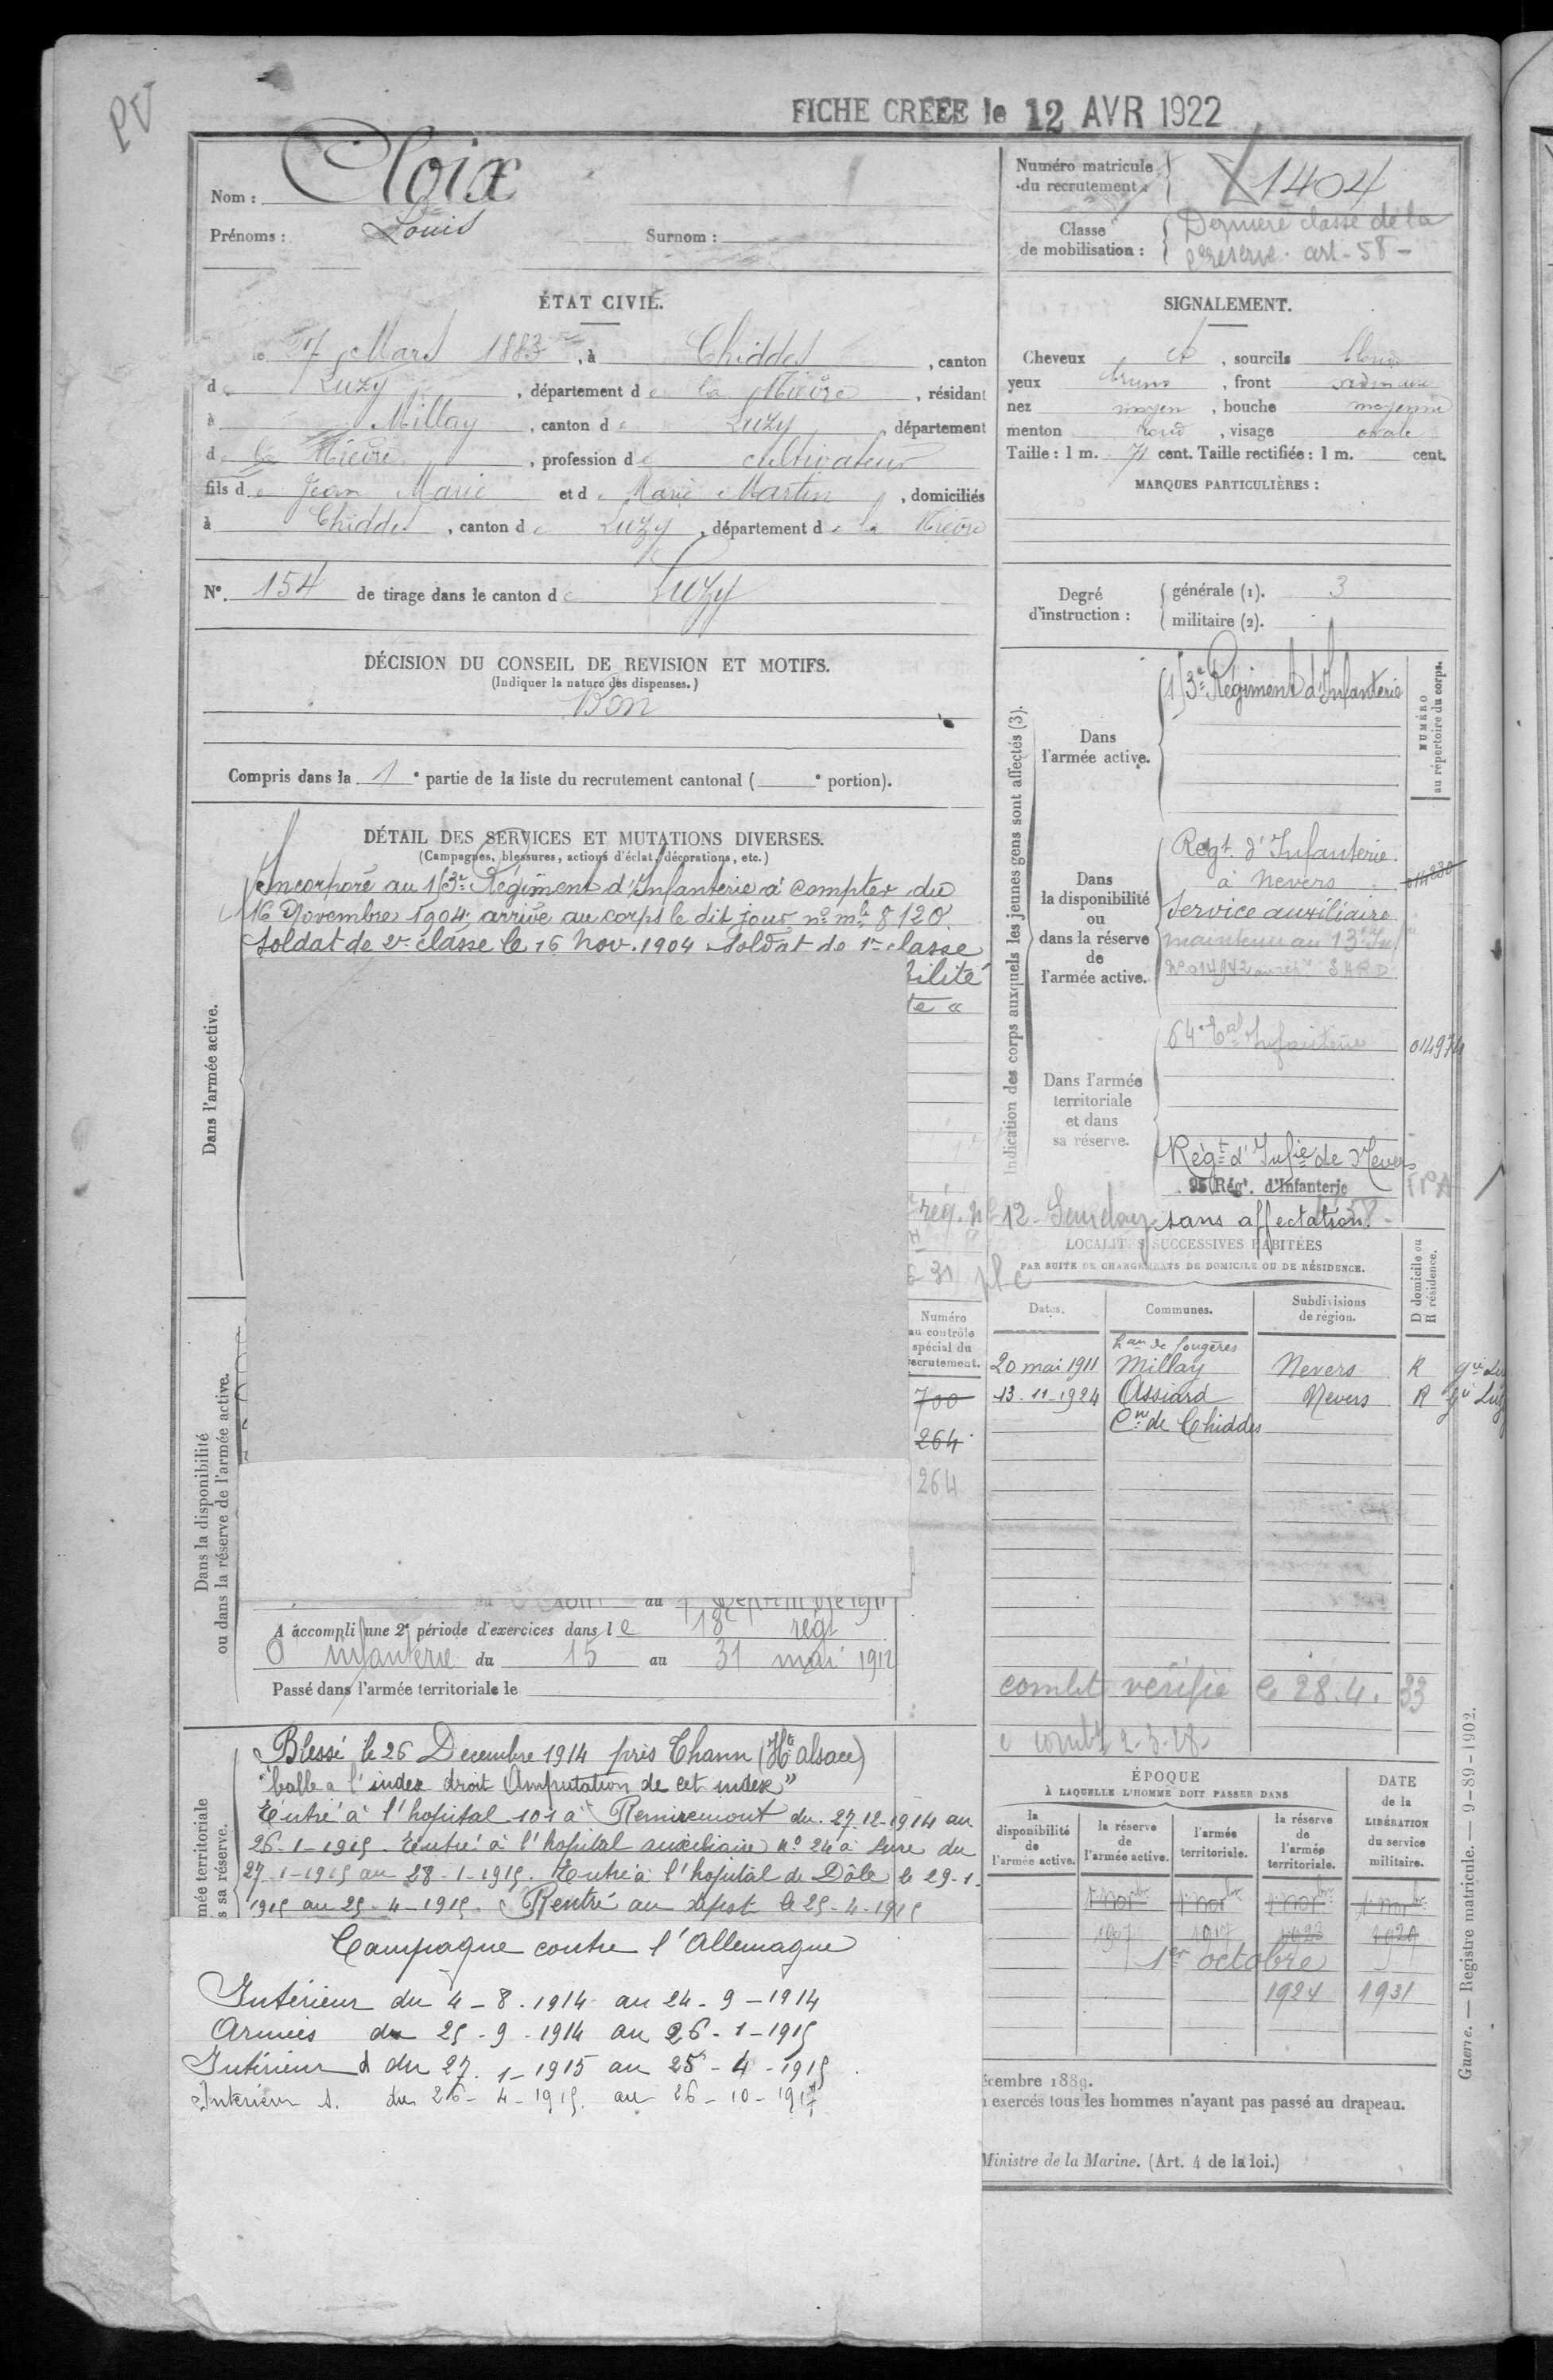 PV
FICHE CRÉÉE le 12 AVR 1922
Nom : Cloix
Prénoms : Louis Surnom :
Numéro matricule du recrutement : 1404
Classe de mobilisation : Dernière classe de la réserve. art-58-
ÉTAT CIVIL.
Mars 1883, à Chiddes, canton
de Luzy, département de la Nièvre, résidant
à Millay, canton de Luzy, département
de la Nièvre, profession de cultivateur
fils de Jean Marie et de Marie Martin, domiciliés
à Chiddes, canton de Luzy, département de la Nièvre
N° 154 de tirage dans le canton de Luzy
SIGNALEMENT.
Cheveux et, sourcils
yeux bruns, front ordinaire
nez moyen, bouche moyenne
menton rond, visage ovale
Taille : 1 m. 71 cent. Taille rectifiée : 1 m. cent.
MARQUES PARTICULIÈRES :
Degré d'instruction : générale (1). 3
militaire (2).
DÉCISION DU CONSEIL DE REVISION ET MOTIFS.
(Indiquer la nature des dispenses.)
Bon
Compris dans la 1e partie de la liste du recrutement cantonal ( e portion).
DÉTAIL DES SERVICES ET MUTATIONS DIVERSES.
(Campagnes, blessures, actions d'éclat, décorations, etc.)
Dans l'armée active.
Incorporé au 13e Régiment d'Infanterie à compter du
16 Novembre 1904, arrivé au corps le dit jour, n° mle 8120.
Soldat de 2e classe le 16 nov. 1904 Soldat de 1re classe
bilité
te "
Indication des corps auxquels les jeunes gens sont affectés (3).
NUMÉRO au répertoire du corps.
Dans l'armée active.
13e Régiment d'Infanterie
Dans la disponibilité ou dans la réserve de l'armée active.
Régt. d'Infanterie
à Nevers
Service auxiliaire
maintenu au 13e Inf
Dans l'armée territoriale et dans sa réserve.
64e Tal Infanterie 014974
Régt d'Infie de Nevers
95 Régt. d'Infanterie
sans affectation.
LOCALITÉS SUCCESSIVES HABITÉES
PAR SUITE DE CHANGEMENTS DE DOMICILE OU DE RÉSIDENCE.
Dates. Communes. Subdivisions de région. D domicile ou R résidence.
hau de fougères
20 mai 1911 Millay Nevers R
13-11-1924 Assiard Nevers R
Cne de Chiddes
Numéro au contrôle spécial du recrutement.
700
264
264
Dans la disponibilité
ou dans la réserve de l'armée active.
A accompli une 2e période d'exercices dans le 18e régt
d'Infanterie du 15 au 31 mai 1912
Passé dans l'armée territoriale le
vérifié le 28.4.33
mée territoriale
s sa réserve.
Blessé le 26 Décembre 1914 près Thann (Hte alsace)
"balle à l'index droit Amputation de cet index"
Entré à l'hopital 101 à Remiremont du 27-12-1914 au
26-1-1915. Entré à l'hopital auxiliaire n° 24 à Lure du
27-1-1915 au 28-1-1915. Entré à l'hopital de Dôle le 29-1-
1915 au 25-4-1915. Rentré au dépot le 25-4-1915
Campagne contre l'Allemagne
Intérieur du 4-8-1914 au 24-9-1914
Armées du 25-9-1914 au 26-1-1915
Intérieur d du 27-1-1915 au 25-4-1915
Intérieur S. du 26-4-1915 au 26-10-1917
ÉPOQUE
À LAQUELLE L'HOMME DOIT PASSER DANS
la disponibilité de l'armée active.
la réserve de l'armée active.
l'armée territoriale.
la réserve de l'armée territoriale.
DATE de la LIBÉRATION du service militaire.
1er novbre 1er novbre 1er novbre 1er novbre
1907 1917 1923 1929
1er octobre
1924 1931
écembre 1889.
exercés tous les hommes n'ayant pas passé au drapeau.
Ministre de la Marine. (Art. 4 de la loi.)
Guerre. — Registre matricule. — 9-89-1902.